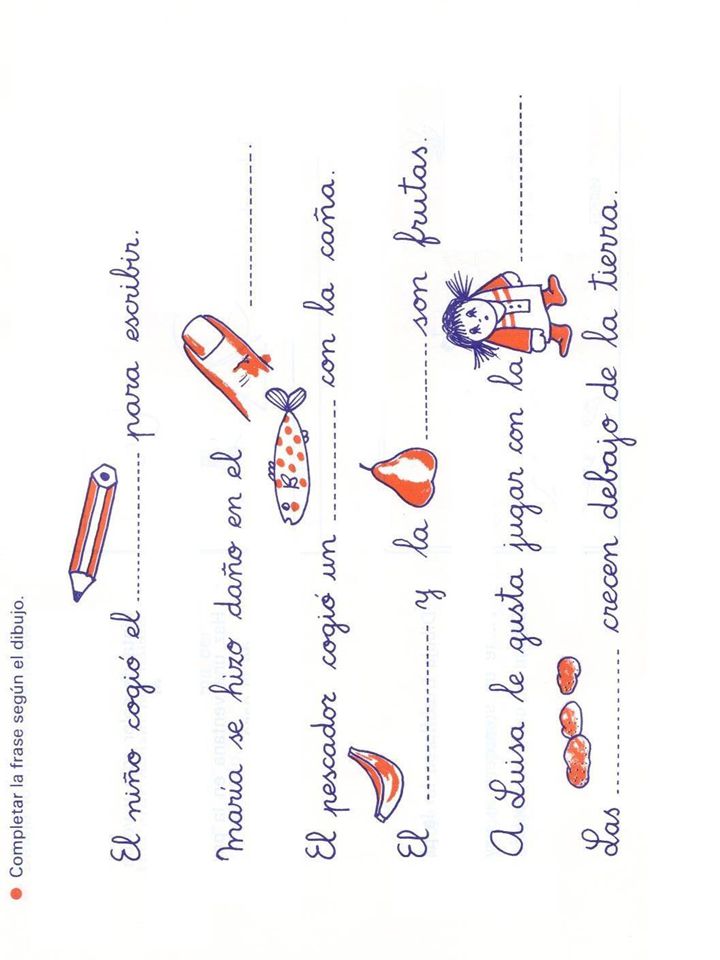 Completar la frase según el dibujo.
El niño cogió el ............ para escribir.
María se hizo daño en el ............ .
El pescador cogió un ............ con la caña.
El ............ y la ............ son frutas.
A Luisa le gusta jugar con la ............ .
Las ............ crecen debajo de la tierra.